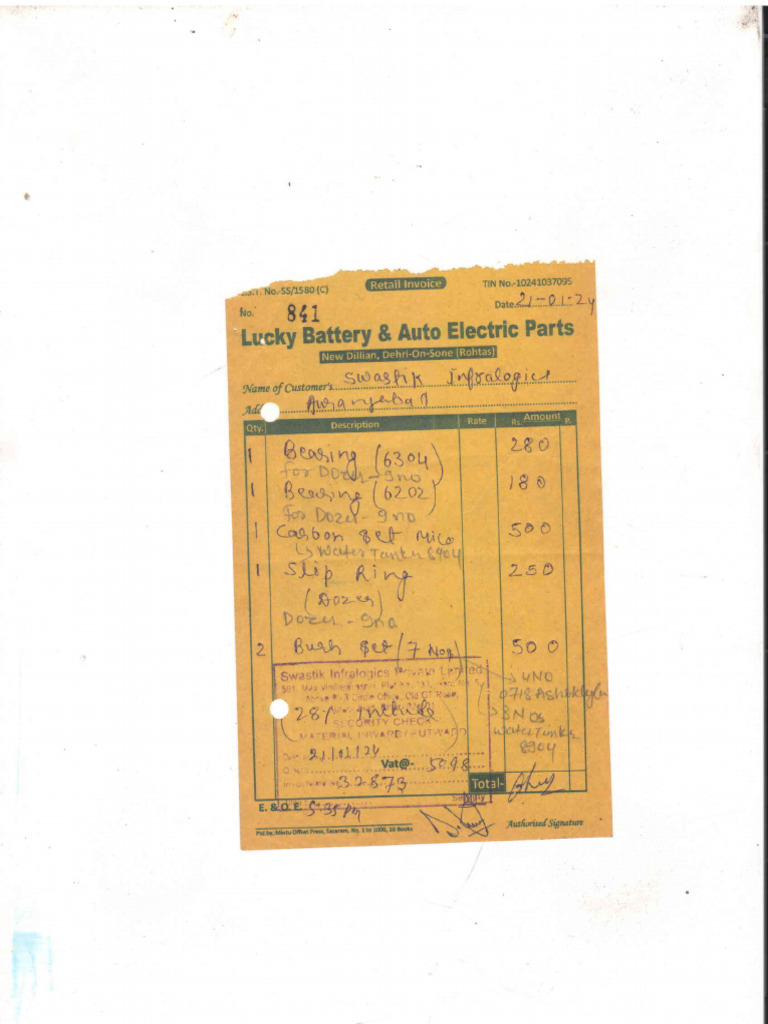 No.-SS/1580 (C)
Retail Invoice
TIN No.-10241037095
No. 841
Date 21-01-24
Lucky Battery & Auto Electric Parts
New Dillian, Dehri-On-Sone (Rohtas)
Name of Customer's Swastik Infralogics
Qty. Description Rate Amount Rs. P.
1 Bearing (6304) 280
for Dozer-9no
1 Bearing (6202) 180
for Dozer-9no
1 Carbon Set Mico 500
Water Tanker 8904
1 Slip Ring 250
(Dozer)
Dozer-9no
2 Bush Set (7 Nos) 500
4NO
0718 Ashok
3Nos
Water Tanker
8904
Swastik Infralogics Private Limited
(28% Include)
SECURITY CHECK
MATERIAL INWARD / OUTWARD
21/01/24
Vat@- 5098
32873
Total-
E. & O. E. 5:35 Pm
Authorised Signature
Ptd by; Mintu Offset Press, Sasaram, No. 1 to 1000, 10 Books